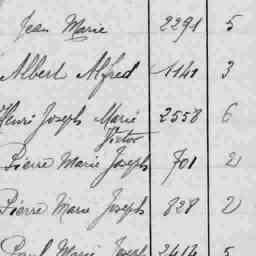 Jean Marie 2291 5
Albert Alfred 1141 3
Henri Joseph Marie 2558 6
Victor
Pierre Marie Joseph 701 2
Pierre Marie Joseph 828 2
Paul Marie Joseph 2414 5